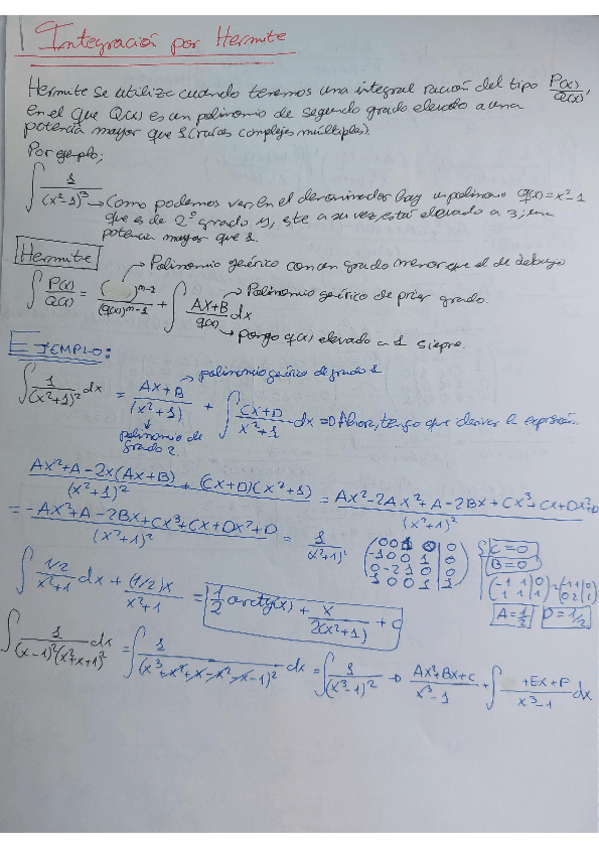 Integración por Hermite
Hermite se utiliza cuando tenemos una integral racion del tipo P(x)/Q(x),
en el que Q(x) es un polinomio de segundo grado elevado a una
potencia mayor que 1 (raíces complejas múltiples).
Por ejemplo;
∫ 1/(x²-1)³ → Como podemos ver, en el denominador hay un polinomio q(x)=x²-1
que es de 2º grado y, este a su vez está elevado a 3; una
potencia mayor que 1.
Hermite → Polinomio genérico con un grado menor que el de debajo
∫ P(x)/Q(x) = ( )^(m-2)/(q(x))^(m-1) + ∫ AX+B/q(x) dx → Polinomio genérico de primer grado.
→ pongo q(x) elevado a 1 siempre.
EJEMPLO:
→ polinomio genérico de grado 1
∫ 1/(x²+1)² dx = AX+B/(x²+1) + ∫ CX+D/x²+1 dx ⇒ Ahora, tengo que derivar la expresión.
↓ polinomio de
grado 2.
Ax²+A-2x(Ax+B)/(x²+1)² + (Cx+D)(x²+1) = Ax²-2Ax²+A-2Bx+Cx³+Cx+Dx²+D/(x²+1)²
= -Ax²+A-2Bx+Cx³+Cx+Dx²+D/(x²+1)² = 1/(x²+1)² (0 0 1 0 | 0
-1 0 0 1 | 0
0 -2 1 0 | 0
1 0 0 1 | 1) { C=0
B=0
(-1 1 | 0
1 1 | 1) = (-1 1 | 0
0 2 | 1)
A=1/2 D=1/2
∫ 1/2/x²+1 dx + (1/2)x/x²+1 = 1/2 arctg(x) + x/2(x²+1) + C
∫ 1/(x-1)²(x²+x+1)² dx = ∫ 1/(x³+x²+x-x²-x-1)² dx = ∫ 1/(x³-1)² → Ax²+Bx+C/x³-1 + ∫ +EX+F/x³-1 dx